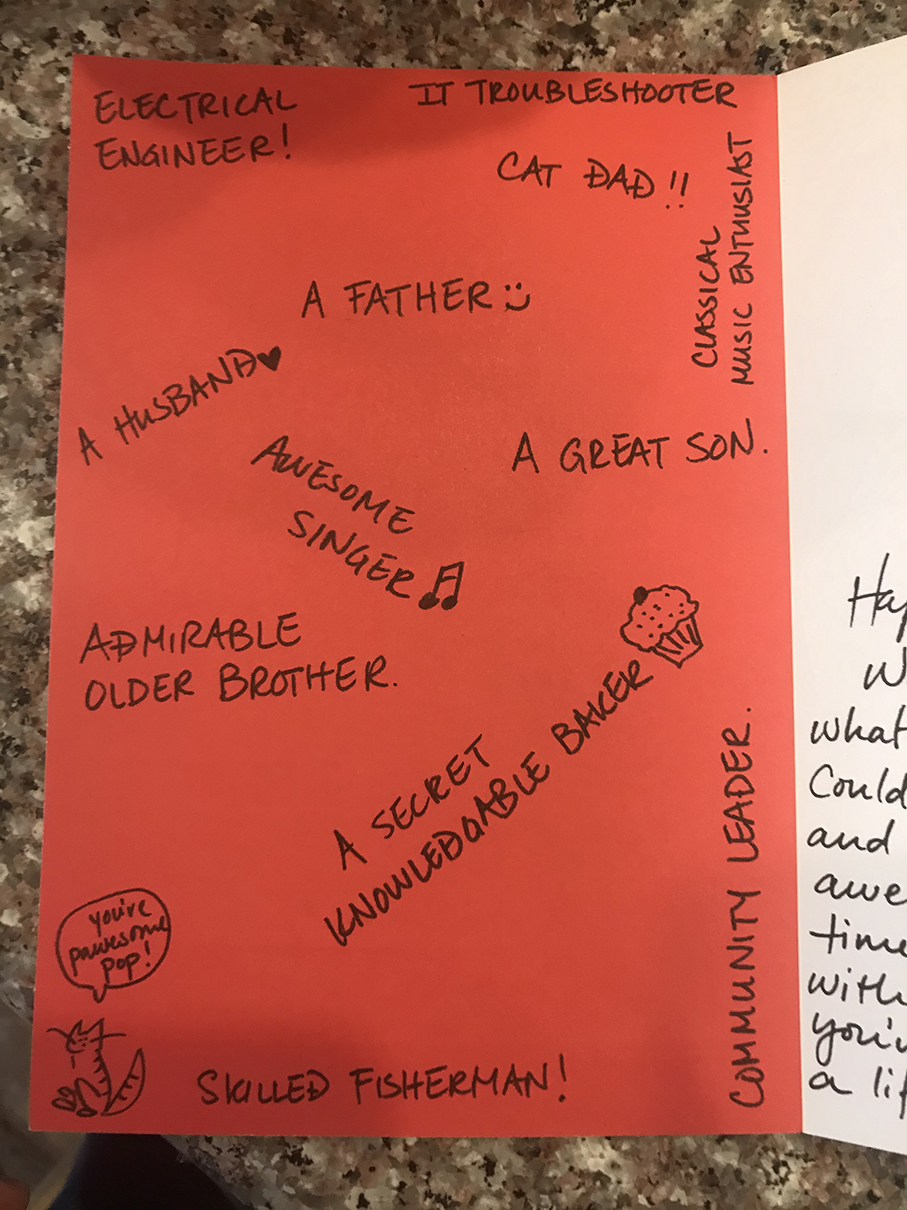 ELECTRICAL
ENGINEER!
IT TROUBLESHOOTER
CAT DAD!!
CLASSICAL
MUSIC ENTHUSIAST
A FATHER
A HUSBAND♥
A GREAT SON.
AWESOME
SINGER
ADMIRABLE
OLDER BROTHER.
A SECRET
KNOWLEDGABLE BAKER
COMMUNITY LEADER.
you're
pawesome
pop!
SKILLED FISHERMAN!
what
Could
and